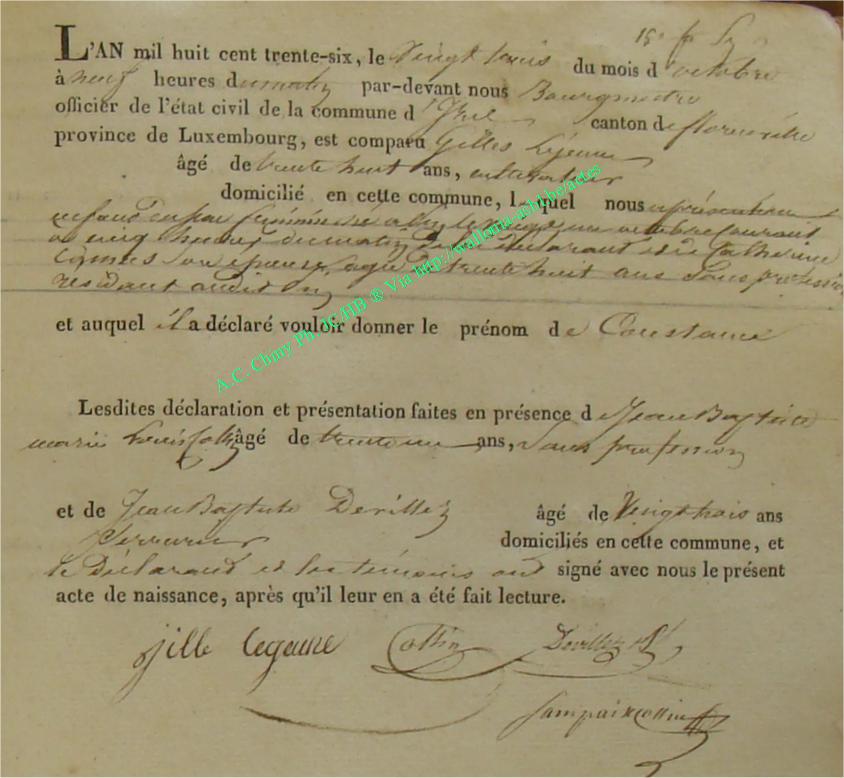 15e f Sy
L'AN mil huit cent trente-six, le vingt trois du mois d'octobre
à neuf heures du matin par-devant nous Bourgmestre
officier de l'état civil de la commune d' canton de florenville
province de Luxembourg, est comparu Gilles Lejeune
âgé de trente huit ans, cultivateur
domicilié en cette commune, lequel nous
enfant du féminin octobre courant
à cinq heures du matin declarant et de Catherine
son épouse, agée de trente huit ans Sans profession
residant audit
et auquel il a déclaré vouloir donner le prénom de Constance
Lesdites déclaration et présentation faites en présence de Jean Baptiste
marie Louis Collin âgé de trente un ans, Sans profession
et de Jean Baptiste Devillez âgé de Vingt trois ans
Serrurier domiciliés en cette commune, et
le Déclarant et les témoins ont signé avec nous le présent
acte de naissance, après qu'il leur en a été fait lecture.
jille legeune Collin Devillez
A.C. Chiny Ph.JC/HB ® Via http://wallonia-asbl.be/actes